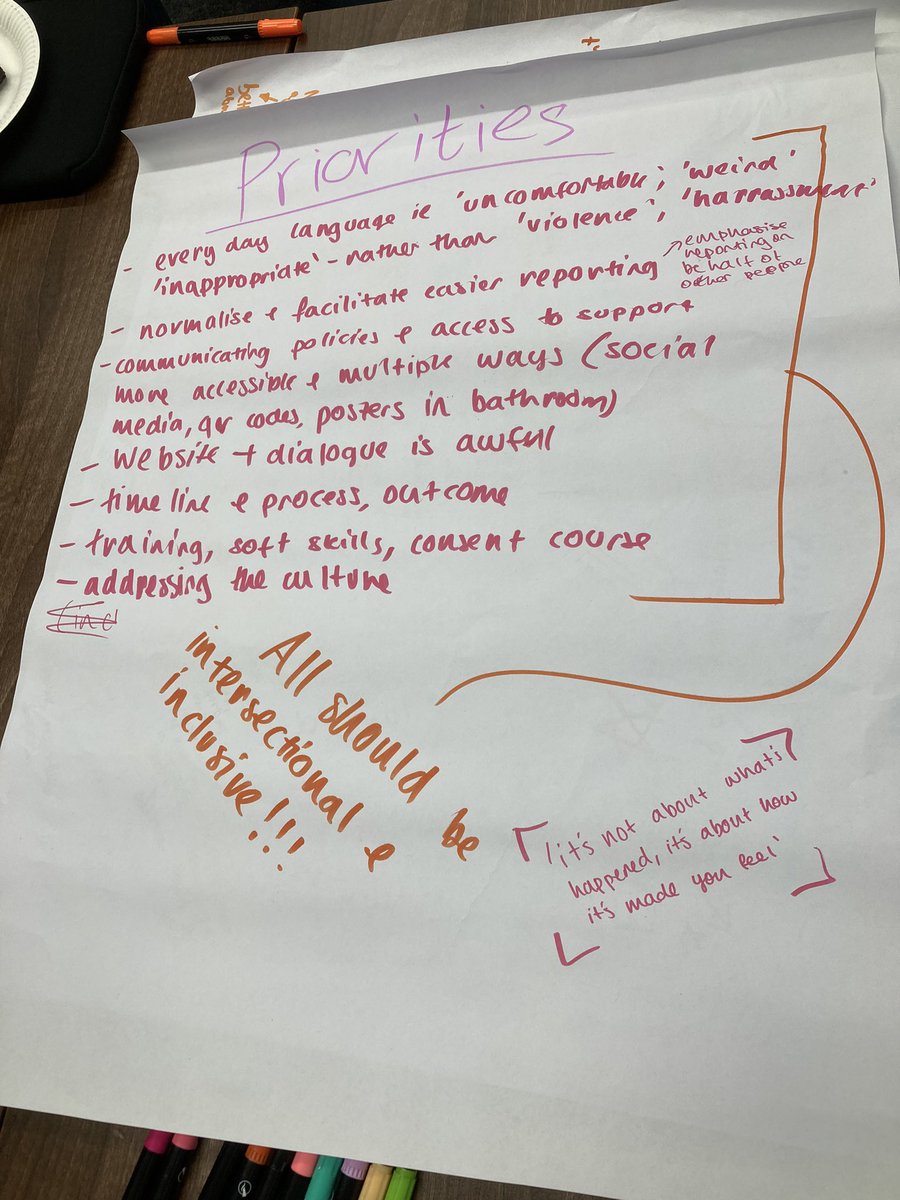 Priorities
- every day language ie 'uncomfortable', 'weird'
'inappropriate' - rather than 'violence', 'harrassment'
- normalise & facilitate easier reporting
↗ emphasise
reporting on
behalf of
other people
- communicating policies & access to support
more accessible & multiple ways (social
media, qr codes, posters in bathroom)
- website + dialogue is awful
- timeline & process, outcome
- training, soft skills, consent course
- addressing the culture
(inc
All should be
intersectional &
inclusive!!!
'it's not about what's
happened, it's about how
it's made you feel'